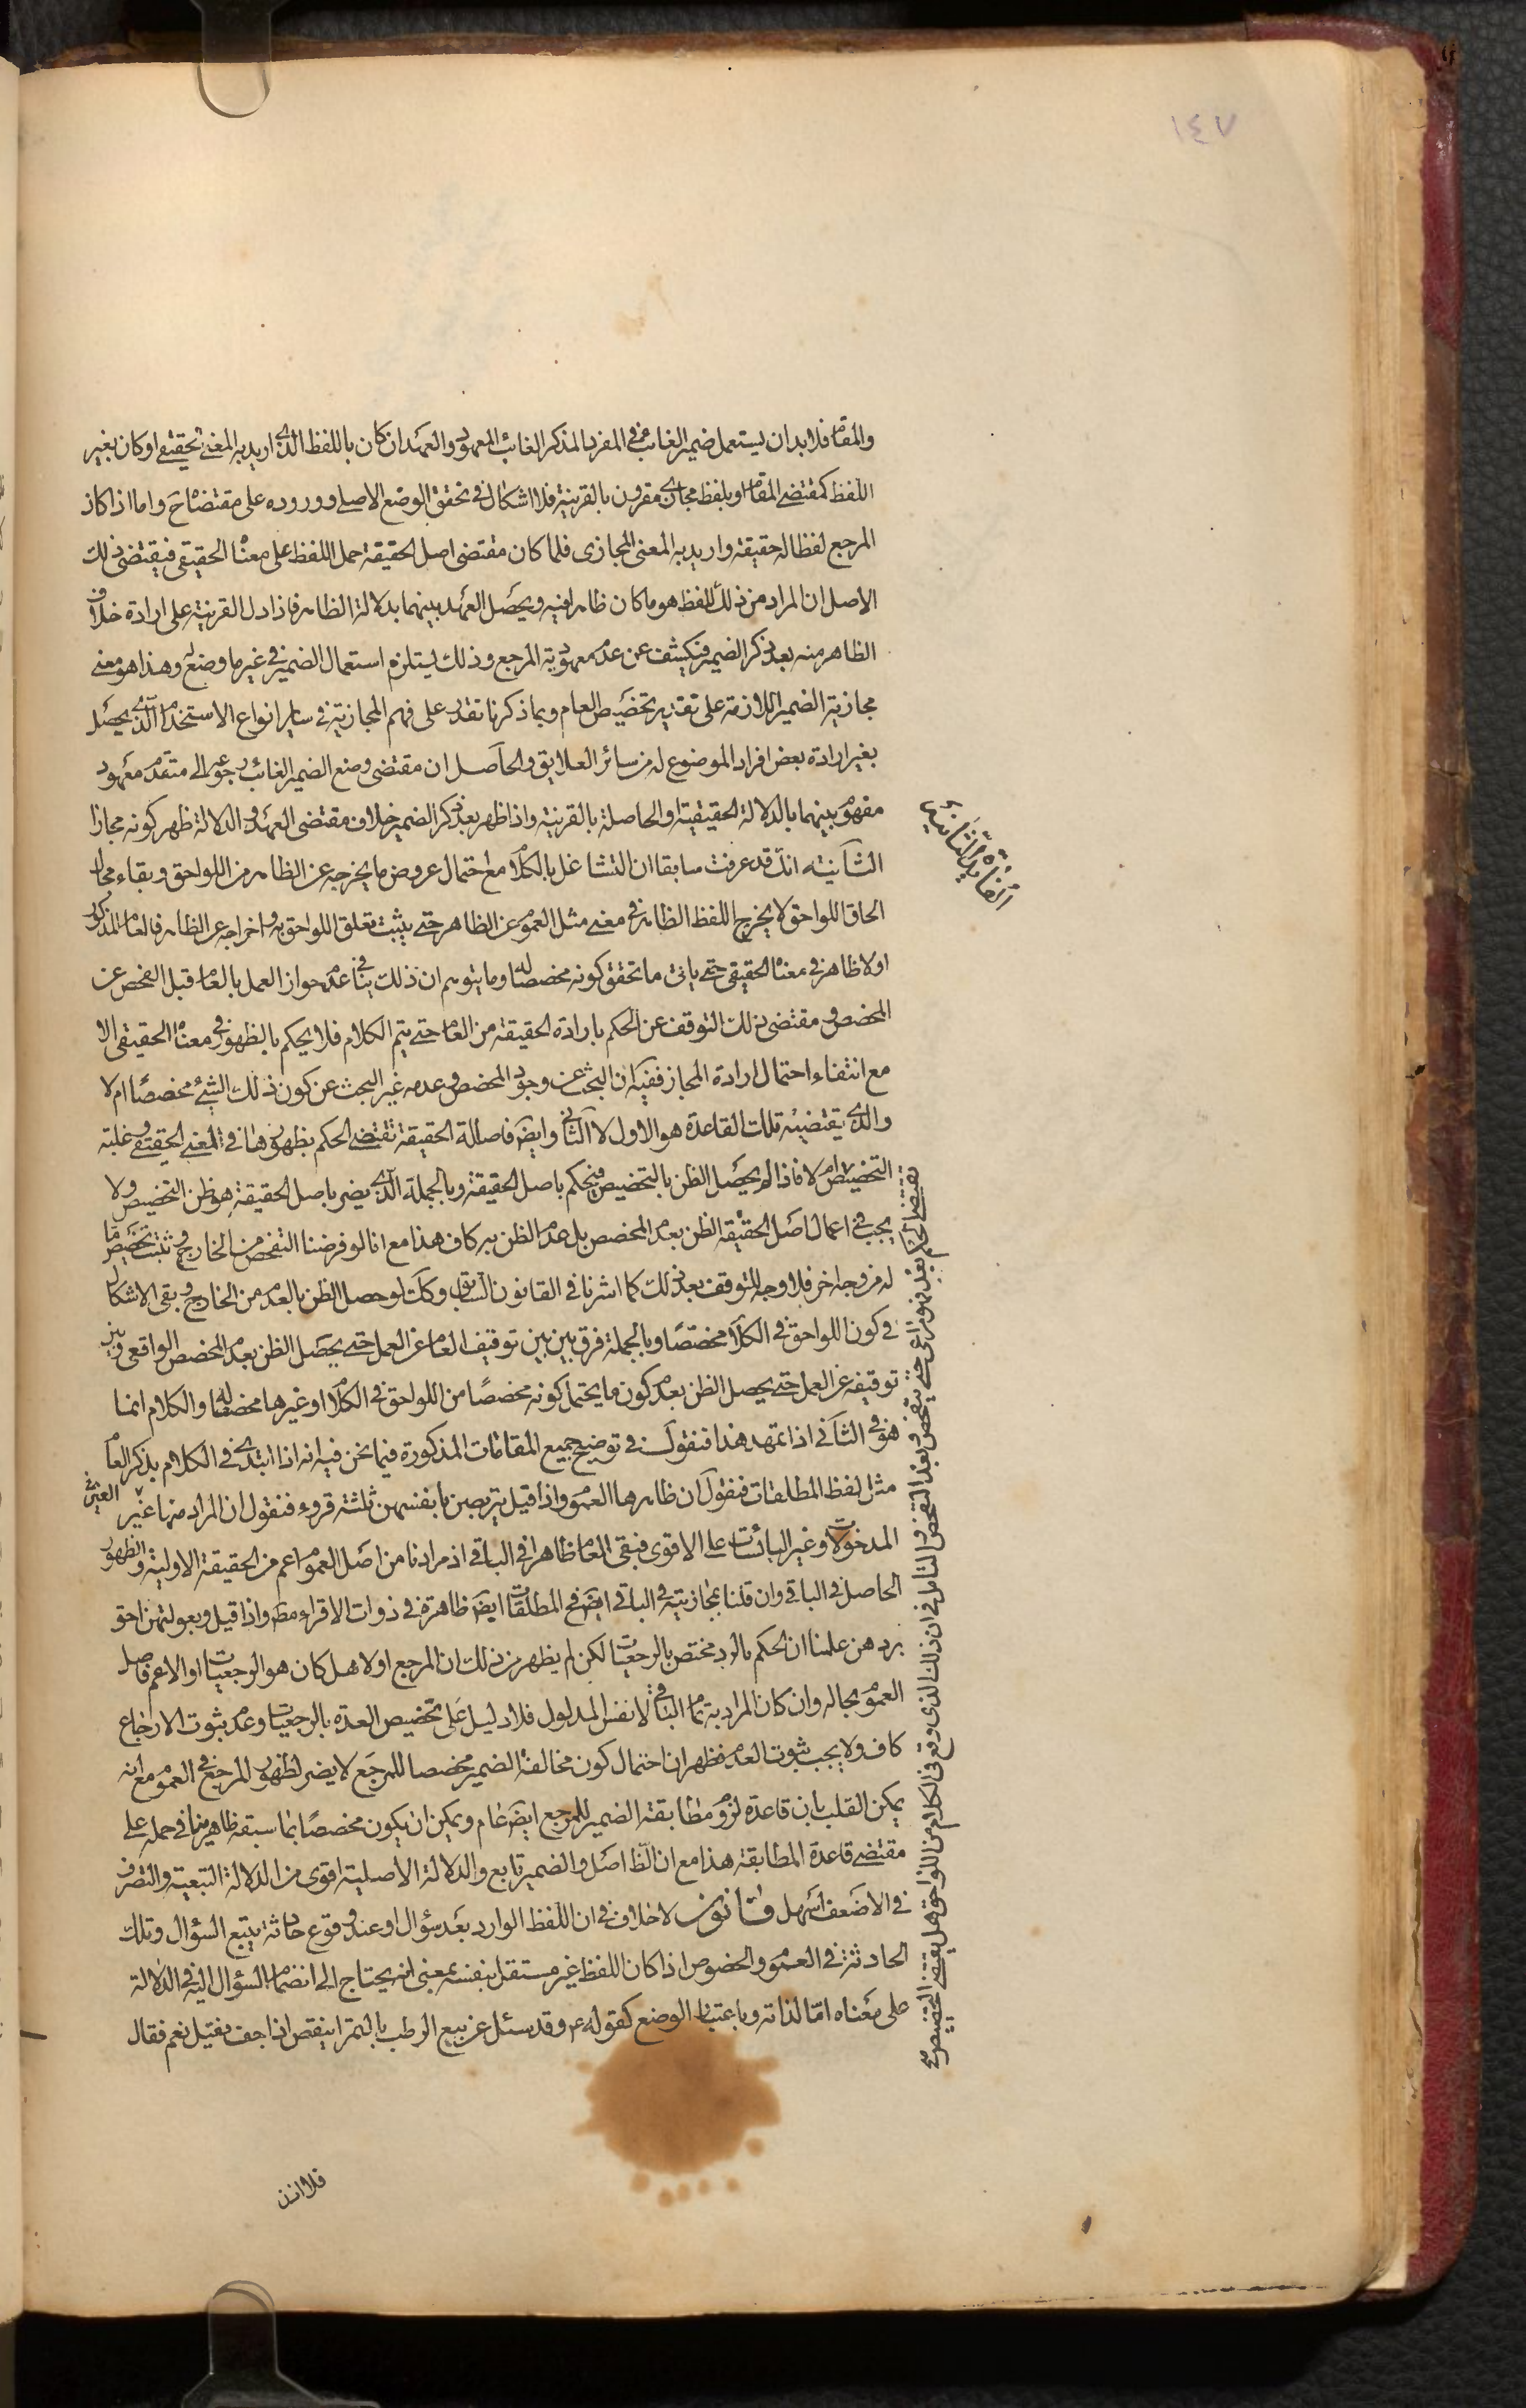 ١٤٧
والمقام فلا بد ان يستعمل ضمير الغائب في المفرد المذكر الغائب المعهود والعهد ان كان باللفظ الذى اريد به المعنى الحقيقى او كان بغير
اللفظ كمقتضى المقام او بلفظ مجازى مقرون بالقرينة فلا اشكال في تحقق الوضع الاصلى ووروده على مقتضاه ح واما اذا كان
المرجع لفظا له حقيقة واريد به المعنى المجازى فلما كان مقتضى اصل الحقيقة حمل اللفظ على معناه الحقيقى فيقتضى ذلك
الاصل ان المراد من ذلك اللفظ هو ما كان ظاهرا فيه ويحصل العهد بينهما بدلالة الظاهر فاذا دل القرينة على ارادة خلاف
الظاهر منه بعد ذكر الضمير فيكشف عن عدم معهودية المرجع وذلك يستلزم استعمال الضمير في غير ما وضع له وهذا هو معنى
مجازية الضمير اللازمة على تقدير تخصيص العام وبما ذكرنا تقدر على فهم المجازية في ساير انواع الاستخدام الذى يحصل
بغير ارادة بعض افراد الموضوع له من سائر العلايق والحاصل ان مقتضى وضع الضمير الغائب رجوعه الى متقدم معهود
مفهوم بينهما بالدلالة الحقيقية او الحاصلة بالقرينة واذا ظهر بعد ذكر الضمير خلاف مقتضى العهد والدلالة ظهر كونه مجازا
الثانية انك قد عرفت سابقا ان التشاغل بالكلام مع احتمال عروض ما يخرجه عن الظاهر من اللواحق وبقاء مجال
الحاق اللواحق لا يخرج اللفظ الظاهر في معنى مثل العموم عن الظاهر حتى يثبت تعلق اللواحق به واخراجه عن الظاهر فالعام المذكور
اولا ظاهر في معناه الحقيقى حتى ياتى ما تحقق كونه مخصصا له وما يتوهم ان ذلك ينافى عدم جواز العمل بالعام قبل الفحص عن
المخصص ومقتضى ذلك التوقف عن الحكم بارادة الحقيقة من العام حتى يتم الكلام فلا يحكم بالظهور في معناه الحقيقى الا
مع انتفاء احتمال ارادة المجاز ففيه ان البحث عن وجود المخصص وعدمه غير البحث عن كون ذلك الشئ مخصصا ام لا
والذى يقتضيه تلك القاعدة هو الاول لا الثانى وايض فاصالة الحقيقة تقتضى الحكم بظهورها في المعنى الحقيقى وغلبة
التخصيص ام لا فاذا لم يحصل الظن بالتخصيص فيحكم باصل الحقيقة وبالجملة الذى يضر باصل الحقيقة هو ظن التخصيص ولا
يجب في اعمال اصل الحقيقة الظن بعدم المخصص بل عدم الظن به كاف هذا مع انا لو فرضنا التفحص من الخارج وثبت تخصيص ما
له من وجه اخر فلا وجه للتوقف بعد ذلك كما اشرنا في القانون السابق وكك لو حصل الظن بالعدم من الخارج وبقى الاشكال
في كون اللواحق في الكلام مخصصا وبالجملة فرق بين بين توقيف العام عن العمل حتى يحصل الظن بعدم المخصص الواقعى وبين
توقيفه عن العمل حتى يحصل الظن بعدم كون ما يحتمل كونه مخصصا من اللواحق في الكلام او غيرها مخصصا له والكلام انما
هو في الثانى اذا تمهد هذا فنقول في توضيح جميع المقامات المذكورة فيما نحن فيه انه اذا ابتدى في الكلام بذكر العام
مثل لفظ المطلقات فنقول ان ظاهرها العموم واذا قيل يتربصن بانفسهن ثلثة قروء فنقول ان المراد منها غير
المدخولات وغير اليائسات على الاقوى فبقى العام ظاهرا في الباقى اذ مرادنا من اصل العموم اعم من الحقيقة الاولية والظهور
الحاصل في الباقى وان قلنا بمجازيته في الباقى ايض فح المطلقات ايض ظاهرة في ذوات الاقراء مط واذا قيل وبعولتهن احق
بردهن علمنا ان الحكم بالرد مختص بالرجعيات لكن لم يظهر من ذلك ان المرجع اولا هل كان هو الرجعيات او الاعم فاصل
العموم بحاله وان كان المراد به تمام الباقى لا نفس المدلول فلا دليل على تخصيص العدة بالرجعيات وعدم ثبوت الارجاع
كاف ولا يجب ثبوت العدم فظهر ان احتمال كون مخالفة الضمير مخصصا للمرجع لا يضر لظهور المرجع في العموم مع انه
يمكن القلب بان قاعدة لزوم مطابقة الضمير للمرجع ايض عام ويمكن ان يكون مخصصا بما سبقه ظاهر منها في حمله على
مقتضى قاعدة المطابقة هذا مع ان الظ اصل والضمير تابع والدلالة الاصلية اقوى من الدلالة التبعية والتصرف
في الاضعف اسهل قانون لا خلاف في ان اللفظ الوارد بعد سؤال او عند وقوع حادثة يتبع السؤال وتلك
الحادثة في العموم والخصوص اذا كان اللفظ غير مستقل بنفسه بمعنى انه يحتاج الى انضمام السؤال اليه في الدلالة
على معناه اما لذاته وباعتبار الوضع كقوله ع وقد سئل عن بيع الرطب بالتمر اينقص اذا جف فقيل نعم فقال
فلا اذن
الفايدة الثانية
تقتضى الحكم بعدمه وهو مراعى حتى يتفحص وبعد التفحص والتامل في ان ذلك الذى وقع في الكلام من اللواحق هل يقتضى التخصيص